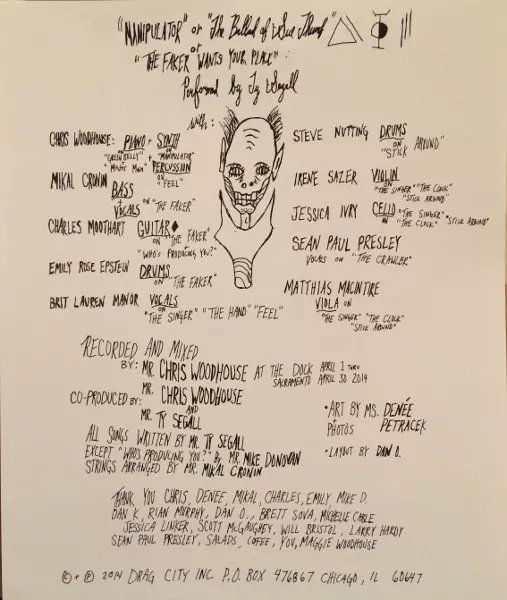 "MANIPULATOR" or "The Ballad of
or
"THE FAKER WANTS YOUR PLACE":
Performed by Ty Segall
with:
CHRIS WOODHOUSE: PIANO + SYNTH
on on
"GREEN BELLY" + "MANIPULATOR"
"MISTER MAIN" PERCUSSION
ON "FEEL"
MIKAL CRONIN
BASS
+
VOCALS ON "THE FAKER"
CHARLES MOOTHART GUITAR
ON "THE FAKER"
+
"WHO'S PRODUCING YOU?"
EMILY ROSE EPSTEIN DRUMS
ON "THE FAKER"
BRIT LAUREN MANOR VOCALS
ON
"THE SINGER" "THE HAND" "FEEL"
STEVE NUTTING DRUMS
ON
"STICK AROUND"
IRENE SAZER VIOLIN
ON
"THE SINGER" "THE CLOCK"
"STICK AROUND"
JESSICA IVRY CELLO "THE SINGER"
ON "THE CLOCK" "STICK AROUND"
SEAN PAUL PRESLEY
VOCALS ON "THE CRAWLER"
MATTHIAS MCINTIRE
VIOLA ON
"THE SINGER" "THE CLOCK"
"STICK AROUND"
RECORDED AND MIXED
BY: MR. CHRIS WOODHOUSE AT THE DOCK APRIL 1 THRU
SACRAMENTO APRIL 30 2014
CO-PRODUCED BY: MR. CHRIS WOODHOUSE
AND
MR. TY SEGALL
ALL SONGS WRITTEN BY MR. TY SEGALL
EXCEPT "WHO'S PRODUCING YOU?" By MR. MIKE DONOVAN
STRINGS ARRANGED BY MR. MIKAL CRONIN
• ART BY MS. DENÉE
+
PHOTOS PETRACEK
• LAYOUT BY DAN O.
THANK YOU CHRIS, DENEE, MIKAL, CHARLES, EMILY MIKE D.
DAN K, RIAN MURPHY, DAN O., BRETT SOVA, MICHELLE CABLE
JESSICA LINKER, SCOTT MCGAUGHEY, WILL BRISTOL, LARRY HARDY
SEAN PAUL PRESLEY, SALADS, COFFEE, YOU, MAGGIE WOODHOUSE
© + ℗ 2014 DRAG CITY INC. P.O. BOX 476867 CHICAGO, IL 60647